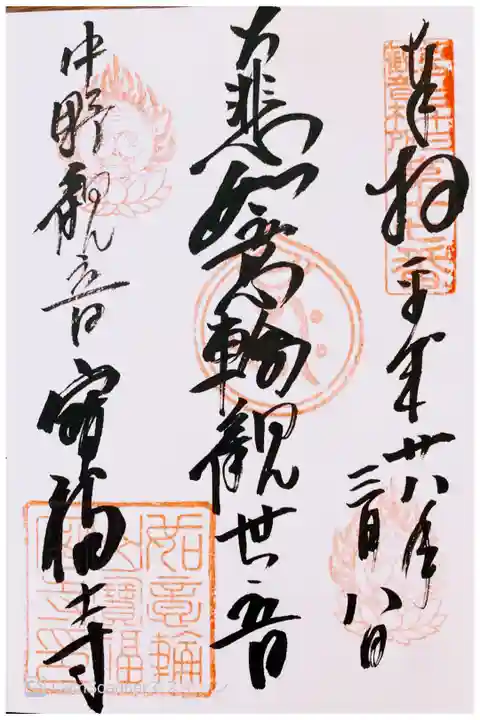 奉拝 平成廿八年
三月八日
大悲如意輪観世音
中野観音 宝福寺
如意輪